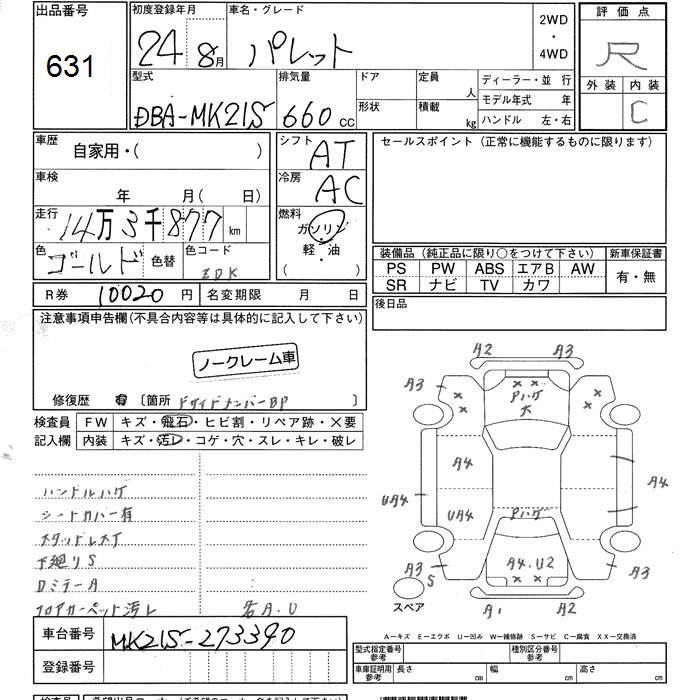 出品番号 初度登録年月 車名・グレード 2WD ・ 4WD 評価点
631 24年8月 パレット R
外装 内装 C
型式 排気量 ドア 定員 人 ディーラー・並 行
DBA-MK21S 660cc 形状 積載 kg モデル年式 年
ハンドル 左・右
車歴 自家用・( ) シフト AT セールスポイント (正常に機能するものに限ります)
車検 年 月( 日) 冷房 AC
走行 14万3千877km 燃料 ガソリン 軽・油 ( )
色 ゴールド 色替 色コード ZDK
装備品 (純正品に限り〇をつけて下さい) 新車保証書
PS PW ABS エアB AW 有・無
SR ナビ TV カワ
R券 10020円 名変期限 月 日 後日品
注意事項申告欄(不具合内容等は具体的に記入して下さい)
ノークレーム車
修復歴 有 〔箇所 FサイドメンバーBP 〕
検査員 FW キズ・飛石・ヒビ割・リペア跡・×要
記入欄 内装 キズ・汚レ・コゲ・穴・スレ・キレ・破レ
A2 A3
A3 Pハゲ 大
A4 A4
UA4 UA4 Pハゲ
A3 S A4.U2 A3
A1 A2
スペア
ハンドルハゲ
シートカバー有
スタッドレスT
下廻りS
DミラーA
フロアカーペット汚レ 各A.U
A-キズ E-エクボ U-凹み W-補修跡 S-サビ C-腐食 XX-交換済
車台番号 MK21S-273390
登録番号
型式指定番号 参考 種別区分番号 参考
車庫証明用 参考 長さ cm 幅 cm 高さ cm